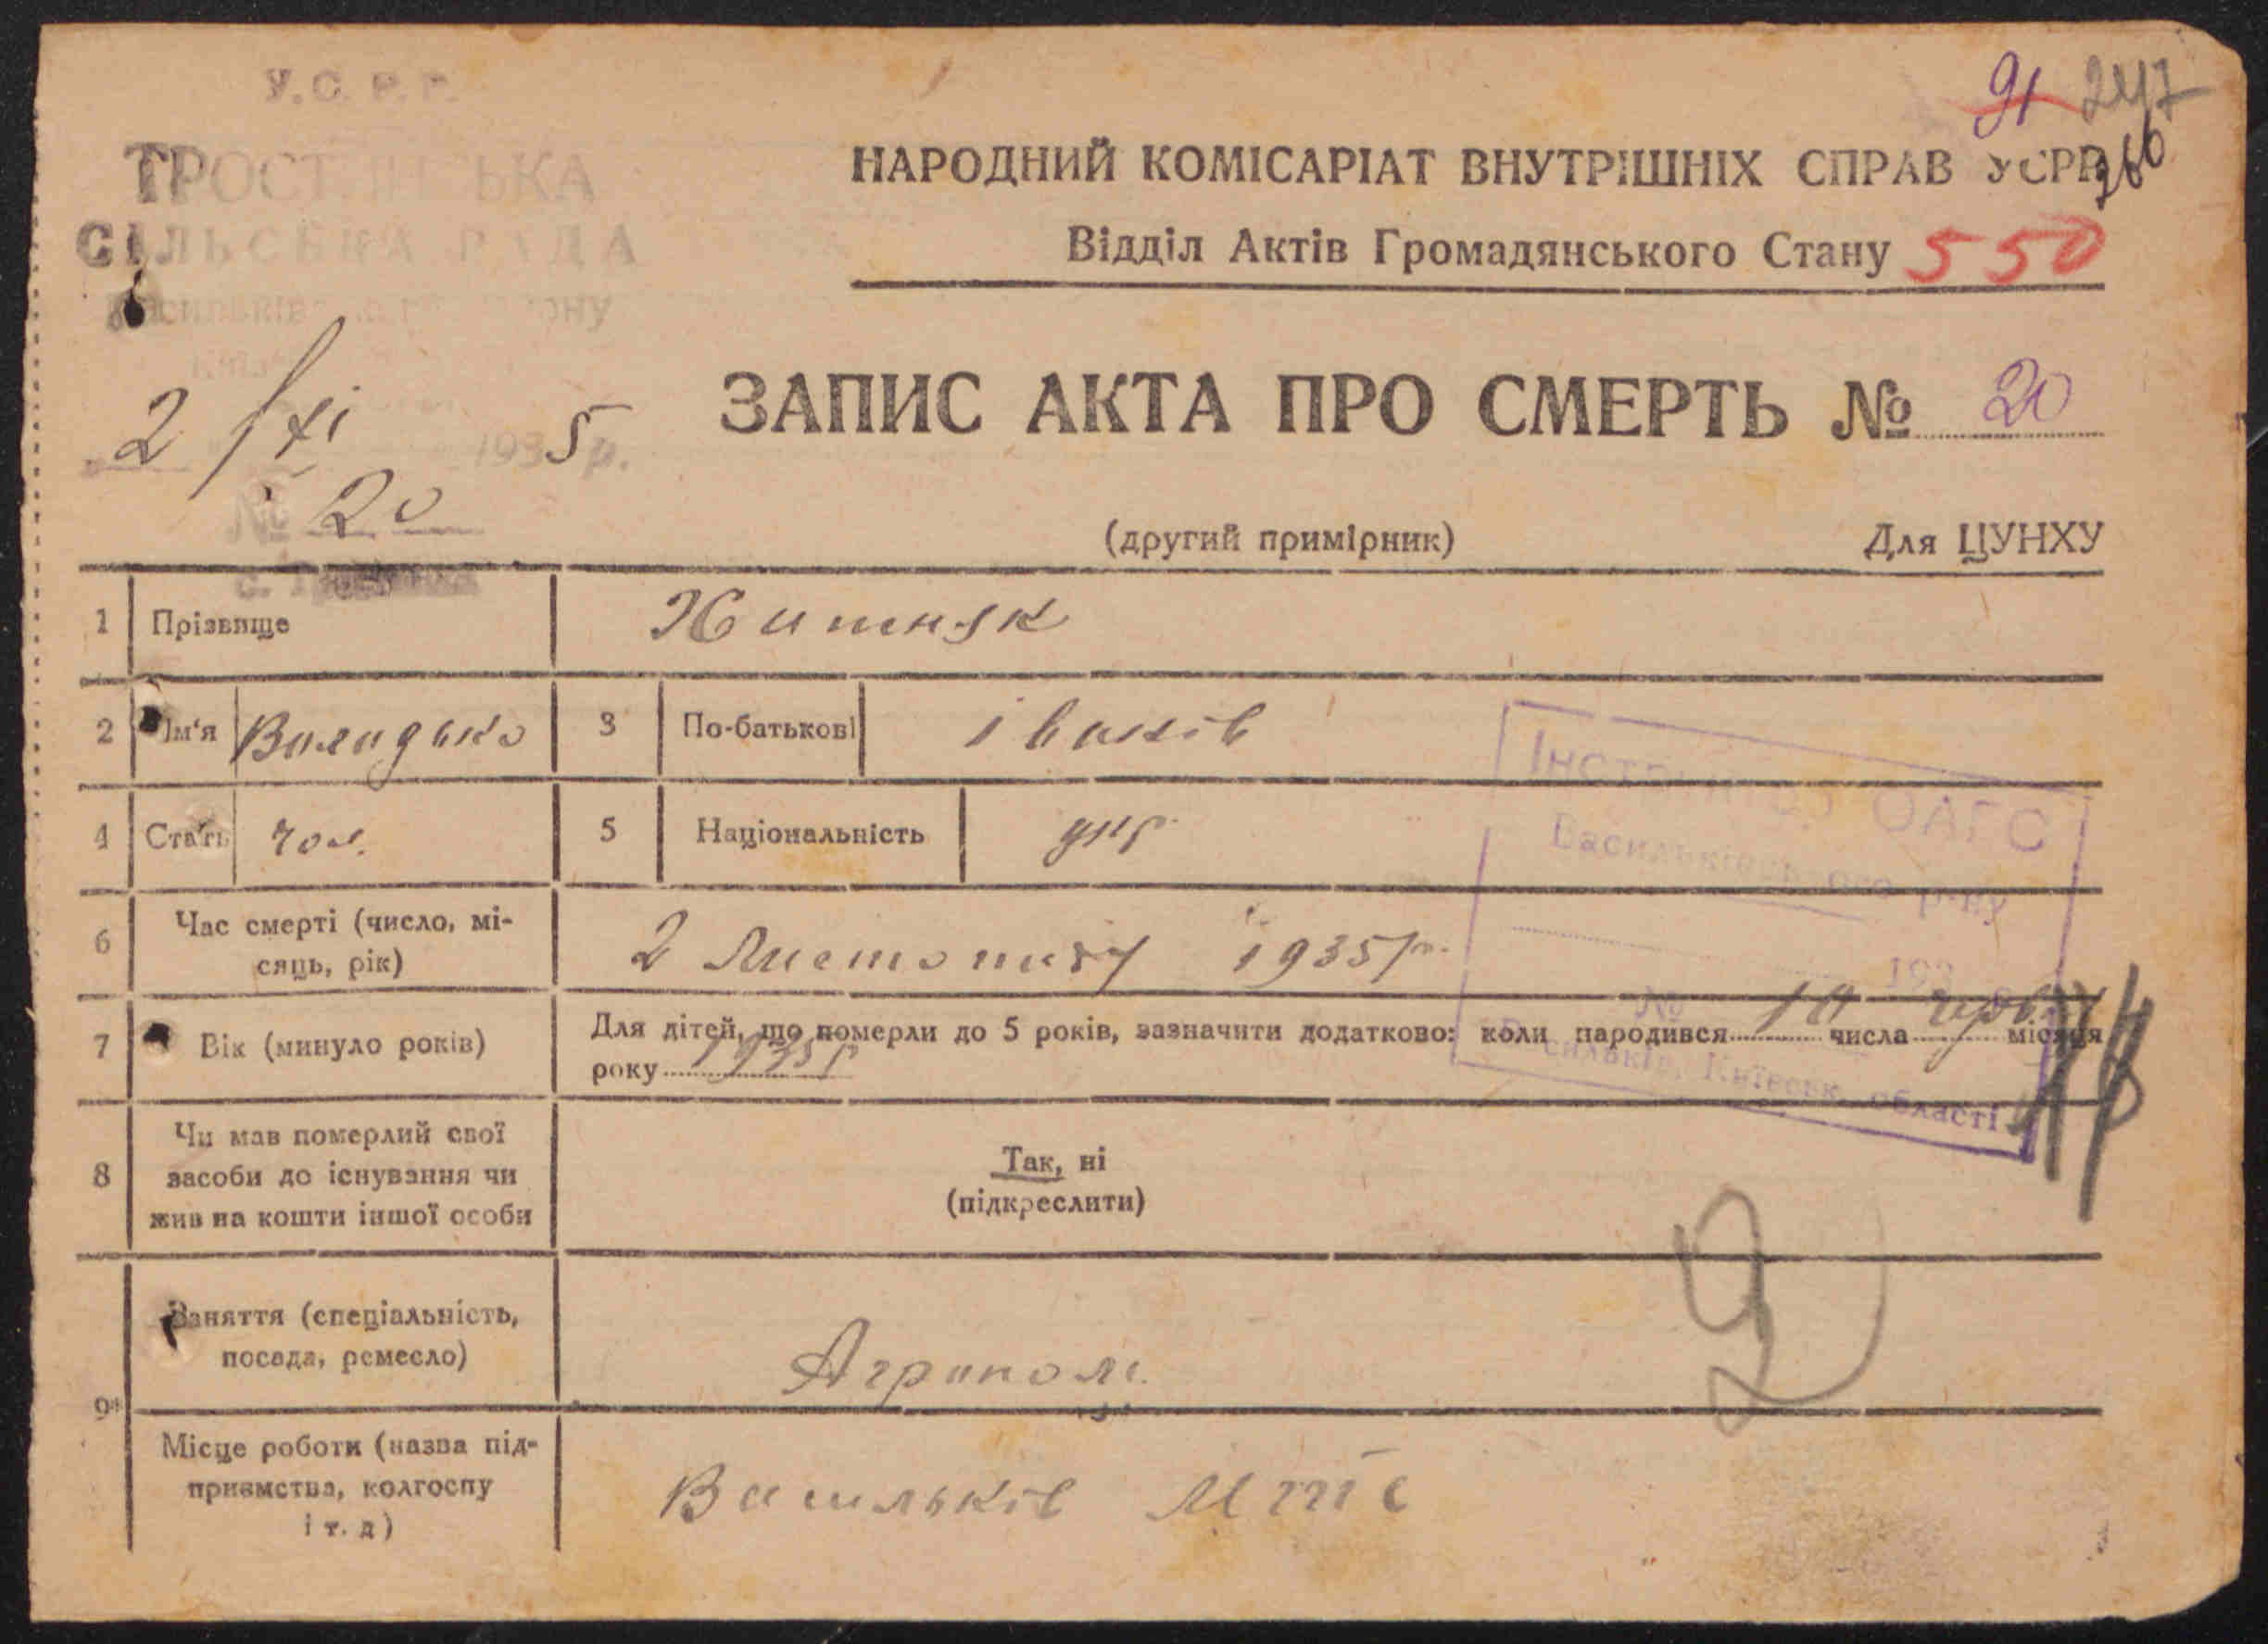 У.С.Р.Р.
91 247
ТРОСТИНСЬКА
НАРОДНИЙ КОМІСАРІАТ ВНУТРІШНІХ СПРАВ УСРР
366
СІЛЬСЬКА РАДА
Відділ Актів Громадянського Стану 550
2/XI 1935 р.
ЗАПИС АКТА ПРО СМЕРТЬ № 20
№ 20
(другий примірник) Для ЦУНХУ
1 Прізвище Житняк
2 Ім'я Володько 3 По-батькові Іванів
4 Стать чол. 5 Національність укр
Інспектор ОАГС
Васильківського р-ну
6 Час смерті (число, мі-
сяць, рік) 2 Листопаду 1935 р.
193
№
7 Вік (минуло років) Для дітей, що померли до 5 років, зазначити додатково: коли народився 10 числа місяця
року 1935 р
м. Васильків, Київськ. області
8 Чи мав померлий свої
засоби до існування чи
жив на кошти іншої особи
Так, ні
(підкреслити)
2
9* Заняття (спеціальність,
посада, ремесло) Агроном.
Місце роботи (назва під-
приємства, колгоспу
і т. д) Васильків МТС